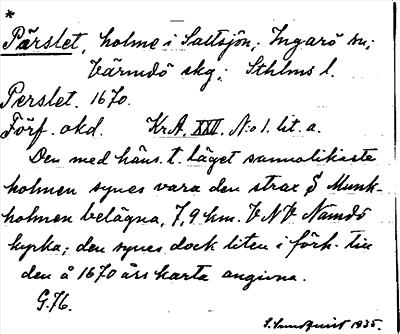 *
Pärslet, holme i Saltsjön; Ingarö sn;
Värmdö skg; Sthlms l.
Perslet. 1670.
Förf. okd. KrA. XXII. N:o 1. lit. a.
Den med häns. t. läget sannolikaste
holmen synes vara den strax S Munk-
holmen belägna, 7,9 km. VNV Nämdö
kyrka; den synes dock liten i förh. till
den å 1670 års karta angivna.
G.76.
S. Sundquist 1935.